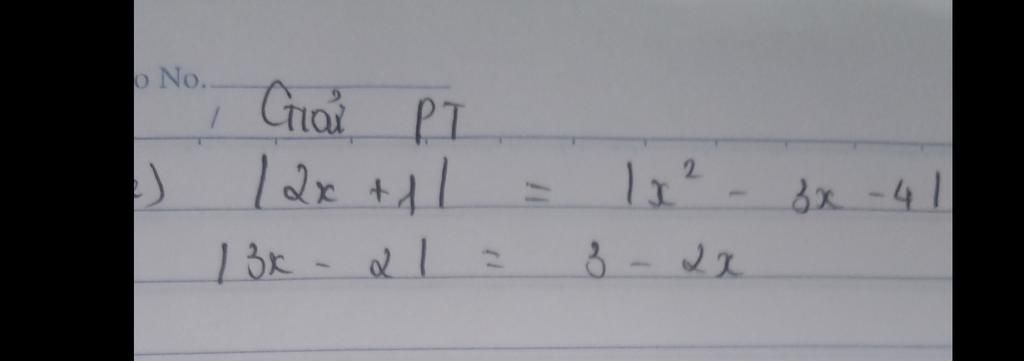 o No.
Giải PT
) |2x + 1| = |x² - 3x - 4|
|3x - 2| = 3 - 2x